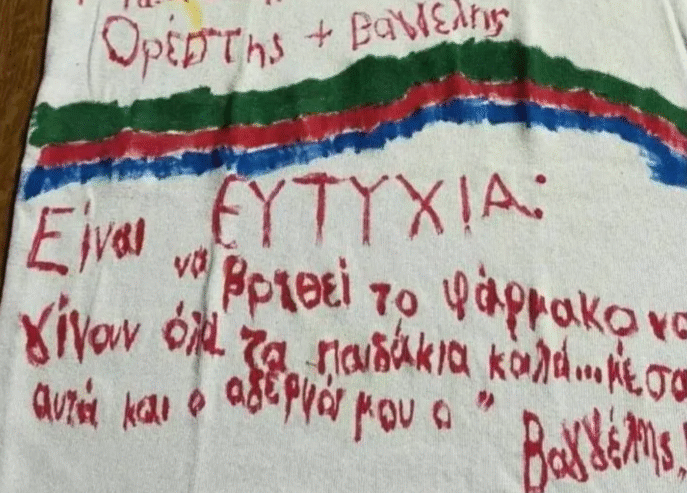 Ορέστης + Βαγγέλης
ΕΥΤΥΧΙΑ:
Είναι να βρεθεί το φάρμακο να
γίνουν όλα τα παιδάκια καλά... μέσα
αυτά και ο αδερφός μου ο "
Βαγγέλης"